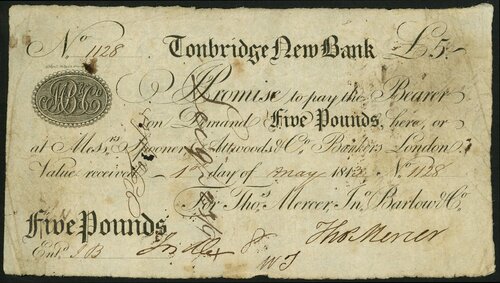 No 1128 Tonbridge New Bank £5.
Promise to pay the Bearer
on Demand Five Pounds, here, or
at Messrs. Spooner Attwoods & Co. Bankers London.
Value received 1st day of May 181 No. 1128
For Thos. Mercer Jno. Barlow & Co.
Five Pounds
Thos Mercer
Entd.